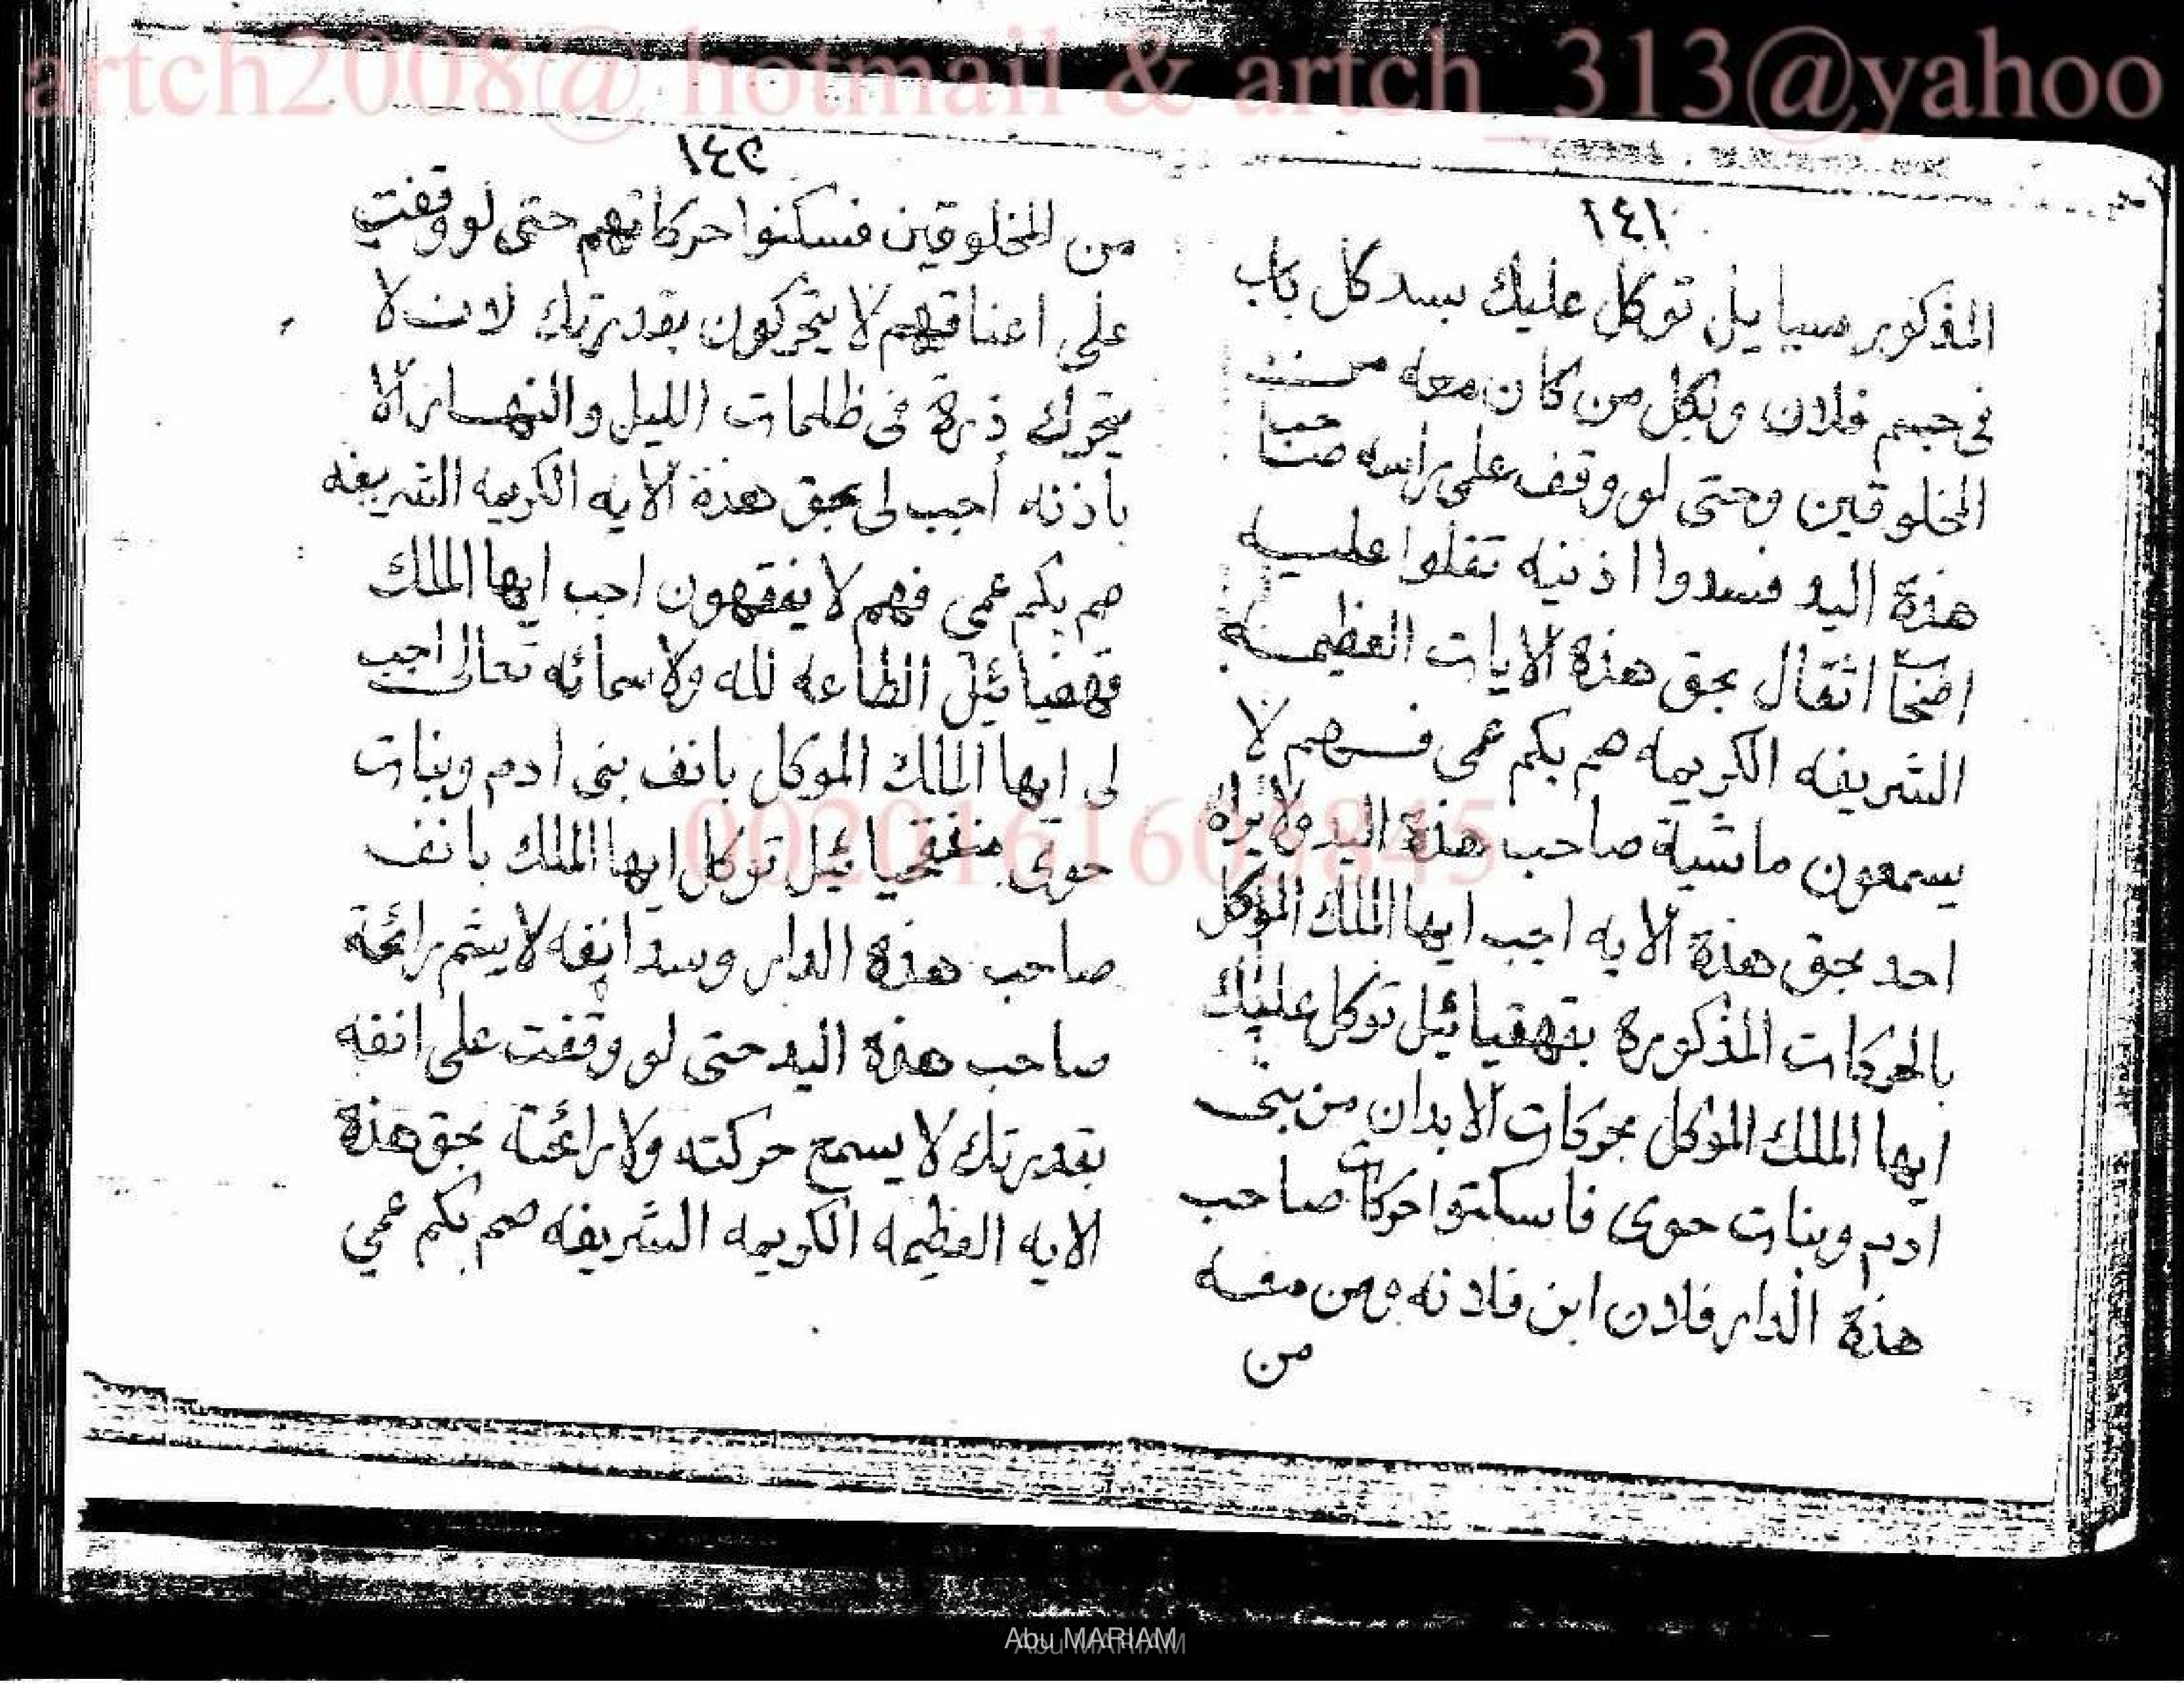 artch2008@ hotmail & artch_313@yahoo
١٤١
المذكور سيايل توكل عليك بسد كل باب
فى جسم فلان وبكل من كان معه من
المخلوقين وحتى لو وقف على راسه صاحب
هذة اليد فسدوا اذنيه تقلوا عليه
اثقال بحق هذة الايات العظيمه
الشريفه الكريمه صم بكم عمى فهم لا
يسمعون ماشية صاحب هذة اليد ولا يراه
احد بحق هذة الايه اجب ايها الملك الموكل
بالحركات المذكورة بقهقيائيل توكل عليك
ايها الملك الموكل بحركات الابدان من بنى
ادم وبنات حوى فاسكتوا حركات صاحب
هذة الدار فلان ابن فلانه ومن معه
من
١٤٢
من المخلوقين فسكنوا حركاتهم حتى لو وقفت
على اعناقهم لا يتحركون بقدرتك لان لا
يتحرك ذرة فى ظلمات الليل والنهار الا
بأذنه أجب لى بحق هذة الايه الكريمه الشريفه
صم بكم عمي فهم لا يفقهون اجب ايها الملك
قهفيائيل الطاعه لله ولاسمائه تعالى اجب
لى ايها الملك الموكل بانف بنى ادم وبنات
حوى توكل ايها الملك بانف
صاحب هذة الدار وسد انفه لا يشم رائحة
صاحب هذة اليد حتى لو وقفت على انفه
بقدرتك لا يسمع حركته ولا رائحته بحق هذة
الايه العظيمه الكريمه الشريفه صم بكم عمي
00201616093845
Abu MARIAM